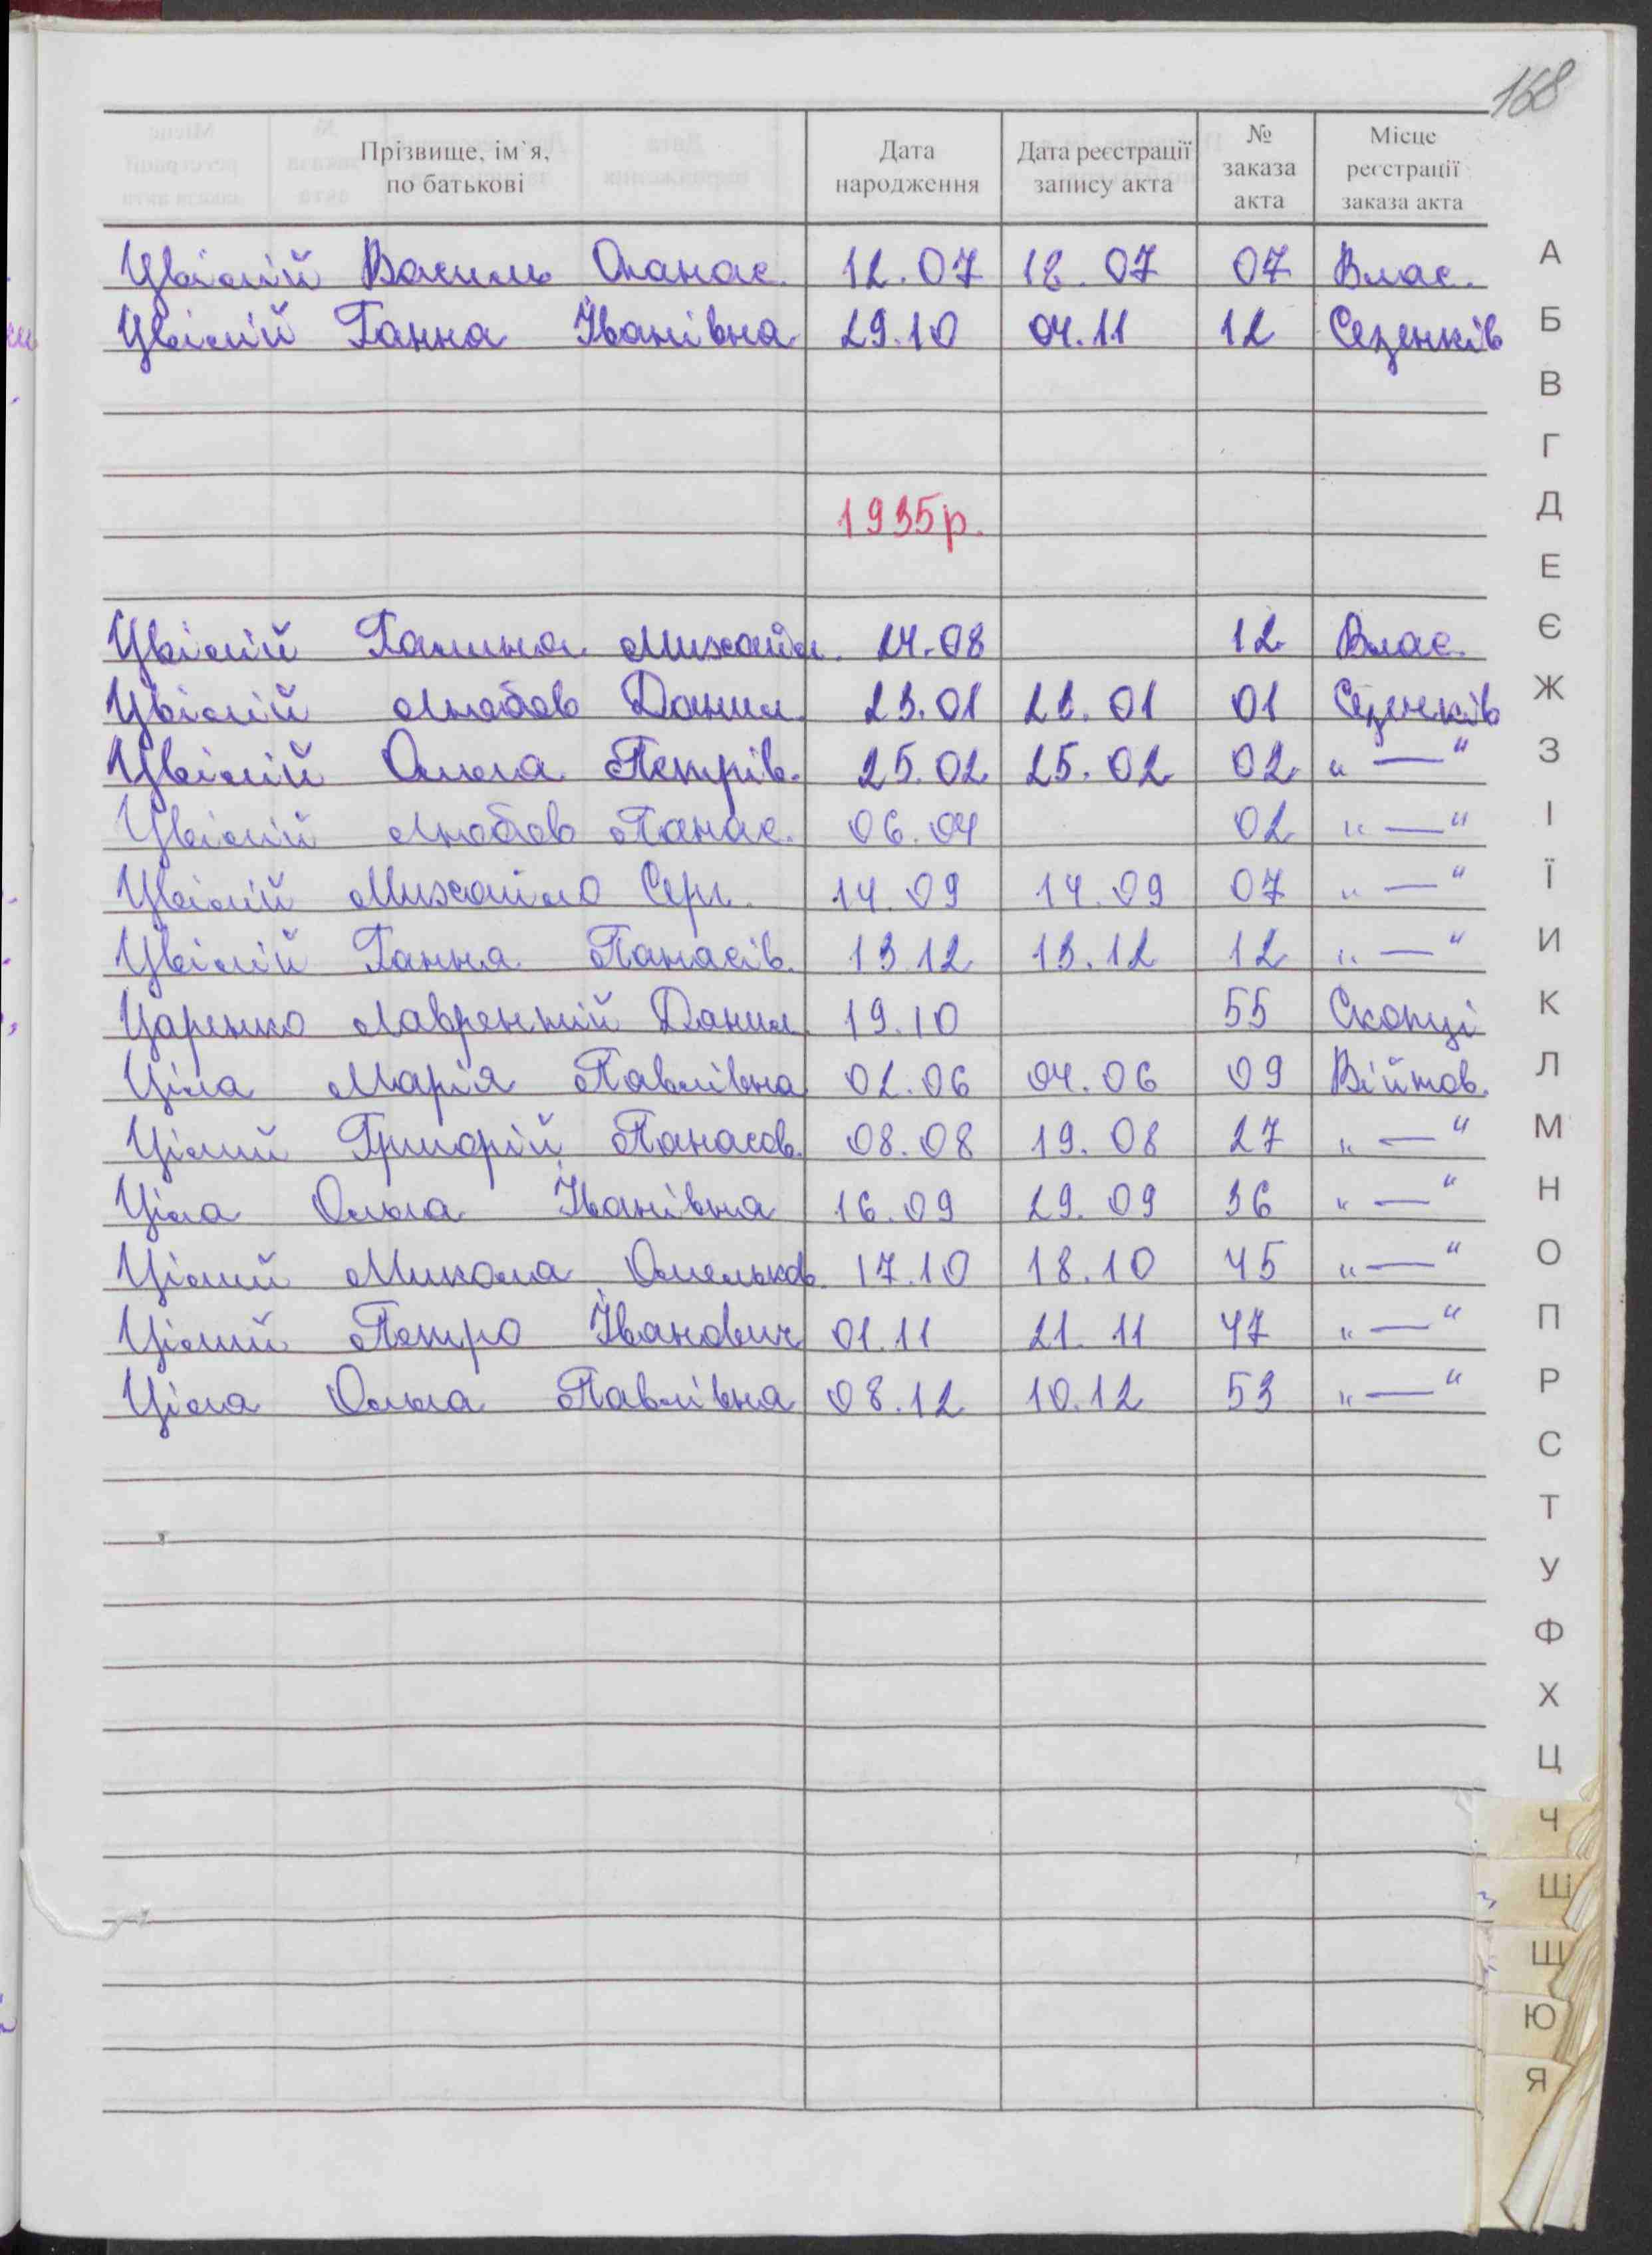 168
Прізвище, ім`я, по батькові | Дата народження | Дата реєстрації запису акта | № заказа акта | Місце реєстрації заказа акта
Цвілій Василь Опанас. 12.07 18.07 07 Влас.
Цвілій Ганна Іванівна 29.10 04.11 12 Сезенків
1935р.
Цвілій Галина Михайл. 24.08 12 Влас.
Цвілій Любов Данил. 23.01 23.01 01 Сезенків
Цвілій Ольга Петрів. 25.02 25.02 02 „ — “
Цвілій Любов Панас. 06.04 02 „ — “
Цвілій Михайло Серг. 14.09 14.09 07 „ — “
Цвілій Ганна Панасів. 13.12 13.12 12 „ — “
Царенко Лаврентій Данил. 19.10 55 Скопці
Ціла Марія Павлівна 02.06 04.06 09 Війтов.
Цілий Григорій Панасов. 08.08 19.08 27 „ — “
Ціла Ольга Іванівна 16.09 29.09 36 „ — “
Цілий Микола Омельков. 17.10 18.10 45 „ — “
Цілий Петро Іванович 01.11 21.11 47 „ — “
Ціла Ольга Павлівна 08.12 10.12 53 „ — “
А
Б
В
Г
Д
Е
Є
Ж
З
І
Ї
И
К
Л
М
Н
О
П
Р
С
Т
У
Ф
Х
Ц
Ч
Ш
Щ
Ю
Я